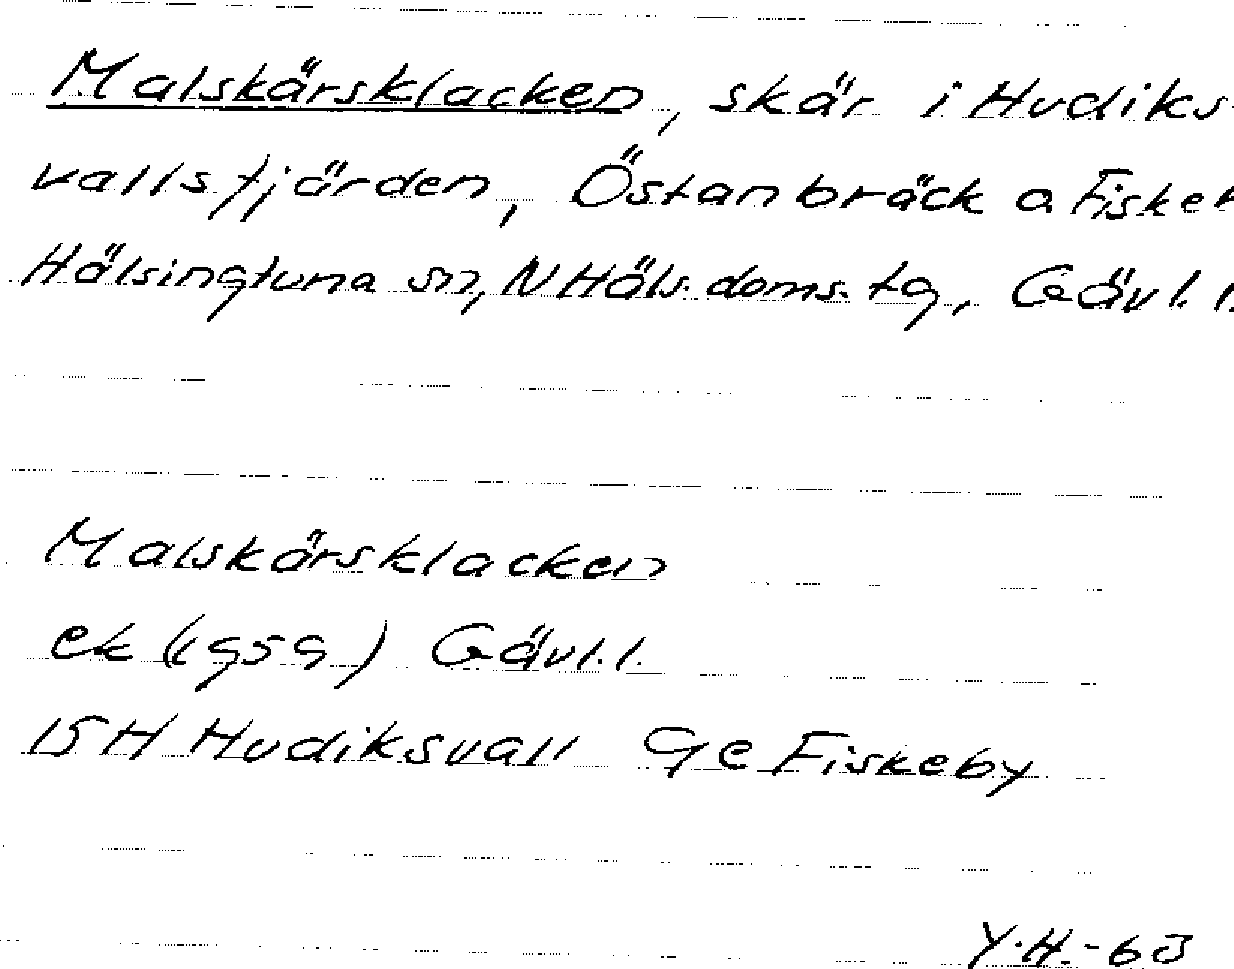 Malskärsklacken, skär i Hudiks-
vallsfjärden, Östanbräck o Fiskeb
Hälsingtuna sn, N Häls. doms. tg, Gävl. l.
Malskärsklacken
ek (1959) Gävl. l.
15H Hudiksvall 9e Fiskeby
Y.H.-63